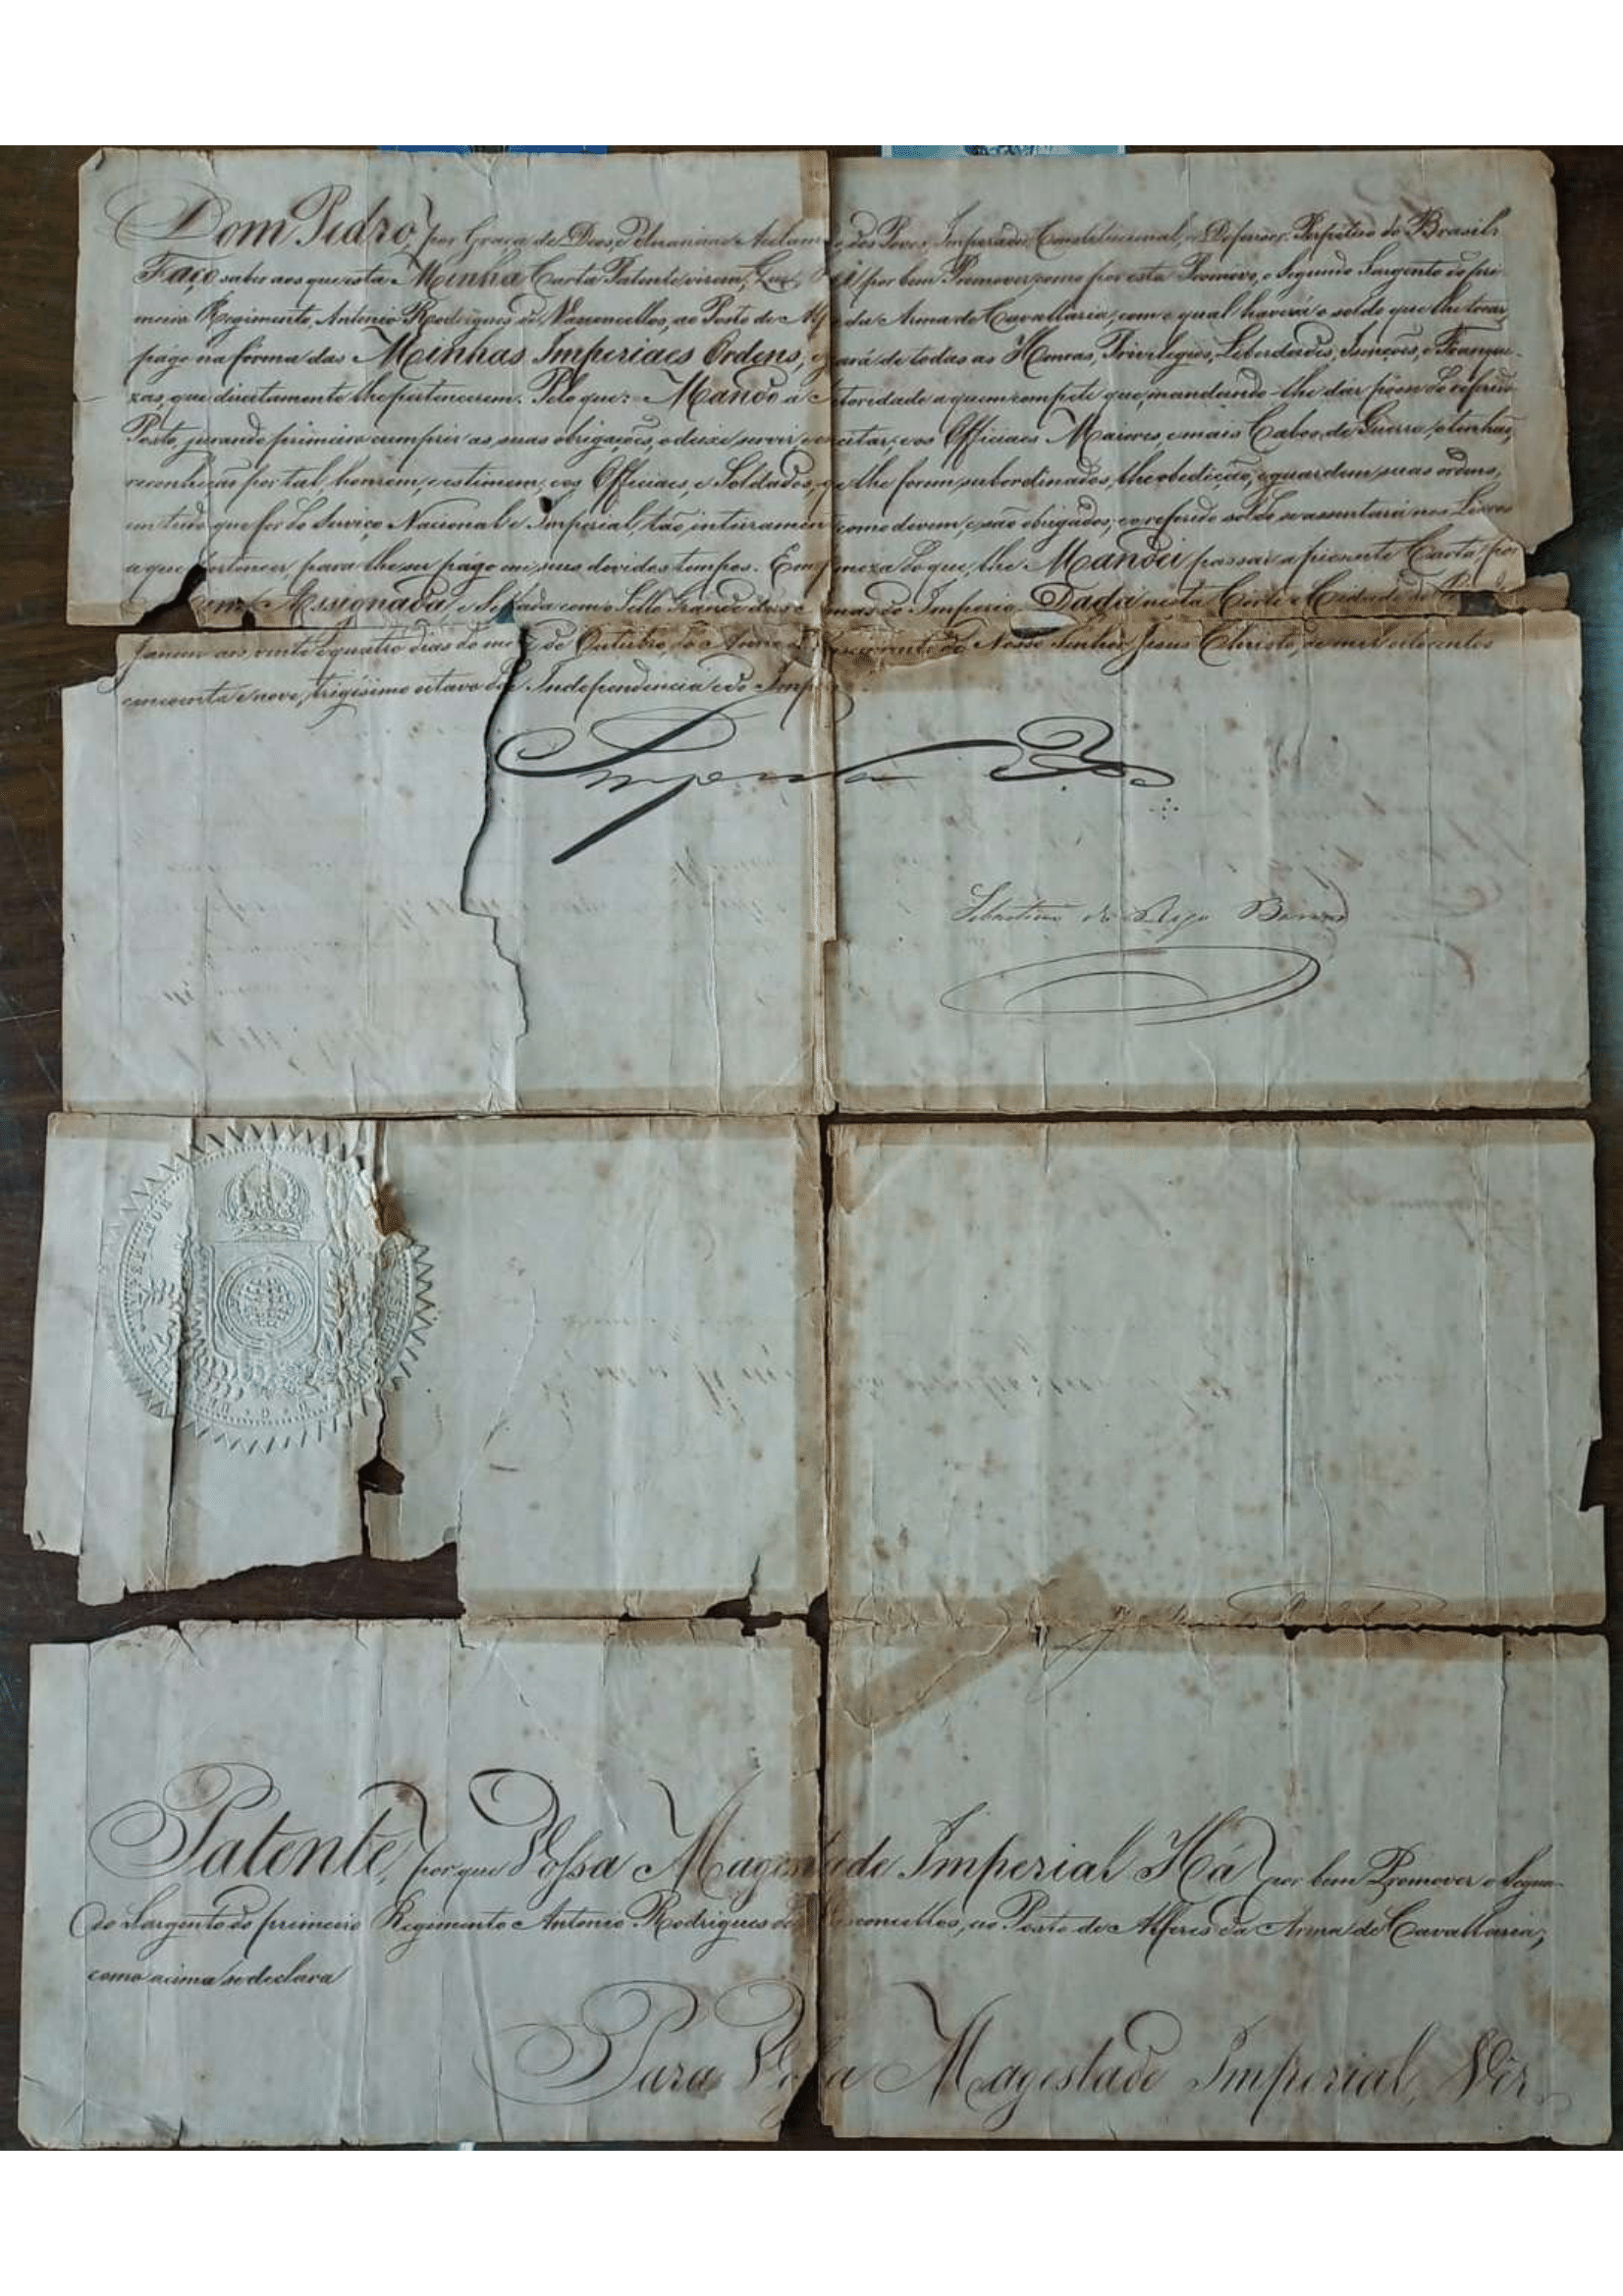 Dom Pedro, por Graça de Deos, e Unanime Acclam o dos Povos, Imperador Constitucional, e Defensor Perpetuo do Brasil:
Faço saber aos que esta Minha Carta Patente virem, Que, Hei por bem Promover, como por esta Promovo, o Segundo Sargento do pri-
meiro Regimento, Antonio Rodrigues de Vasconcellos, ao Posto de Alf da Arma de Cavallaria, com o qual haverá o soldo que lhe tocar,
págo na fórma das Minhas Imperiaes Ordens, e g ará de todas as Honras, Privilegios, Liberdades, Isenções, e Franque-
zas, que direitamente lhe pertencerem. Pelo que: Mando á A toridade a quem compete que, mandando-lhe dar pósse do referido
Posto, jurando primeiro cumprir as suas obrigações, o deixe servir, e e citar; e os Officiaes Maiores, e mais Cabos de Guerra, o tenhão,
reconheção por tal, honrem, e estimem; e os Officiaes, e Soldados, q e lhe forem subordinados, lhe obedeção, e guardem suas ordens,
em tudo que for do Serviço Nacional e Imperial, tão inteiramen como devem, e são obrigados; e o referido soldo se assentará nos Livros
a que pertencer, para lhe ser págo em seus devidos tempos. Em f meza do que, lhe Mandei passar a presente Carta, por
Mim Assignada, e Sellada com o Sello Grande das Armas do Imperio. Dada nesta Côrte e Cidade do Rio de
Janeiro aos vinte e quatro dias do mez de Outubro, do Anno do Nascimento de Nosso Senhor Jesus Christo, de mil oitocentos
cincoenta e nove, trigesimo oitavo da Independencia e do Imp
Imperador
Sebastião do Rego Barros
Patente, por que Vossa Magestade Imperial Há por bem Promover o Segun-
do Sargento do primeiro Regimento Antonio Rodrigues de Vasconcellos, ao Posto de Alferes da Arma de Cavallaria;
como acima se declara
Para Vossa Magestade Imperial, Vêr.